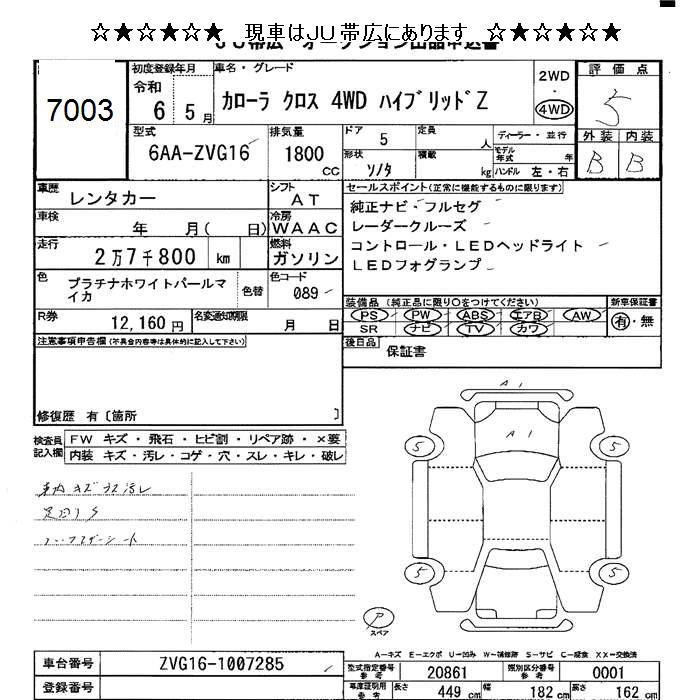 ☆★☆★☆★☆ 現車はJU帯広にあります ☆★☆★☆★☆
JU帯広 オークション出品申込書
7003
初度登録年月
令和
6 5月
車名・グレード
カローラ クロス 4WD ハイブリッドZ
2WD
・
4WD
評価点
5
外装 内装
B B
型式
6AA-ZVG16
排気量
1800 CC
ドア
5
定員
人
形状
ソノタ
積載
kg
ディーラー・並行
モデル年式 年
ハンドル 左・右
車歴
レンタカー
シフト
AT
車検
年 月( 日)
冷房
WAAC
走行
2万7千800 km
燃料
ガソリン
色
プラチナホワイトパールマイカ
色替
色コード
089
R券
12,160円
名変通知期限
月 日
セールスポイント(正常に機能するものに限ります)
純正ナビ・フルセグ
レーダークルーズ
コントロール・LEDヘッドライト
LEDフォグランプ
装備品(純正品に限り○をつけてください)
PS PW ABS エアB AW
SR ナビ TV カワ
新車保証書
有・無
後日品
保証書
注意事項申告欄(不具合内容等は具体的に記入して下さい)
修復歴 有〔箇所 〕
検査員記入欄
FW キズ・飛石・ヒビ割・リペア跡・×要
内装 キズ・汚レ・コゲ・穴・スレ・キレ・破レ
車内キズ スス汚レ
足回リS
ハーフレザーシート
A1
A1
5
5
5
5
P
スペア
A-キズ E-エクボ U-凹み W-補修跡 S-サビ C-腐食 XX-交換済
車台番号
ZVG16-1007285
登録番号
型式指定番号 参考
20861
類別区分番号 参考
0001
車庫証明用 参考
長さ 449 cm
幅 182 cm
高さ 162 cm